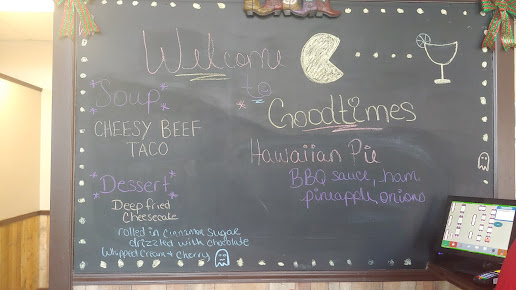 Welcome
to
Goodtimes
*Soup*
CHEESY BEEF
TACO
*Dessert*
Deep fried
Cheesecake
rolled in Cinnamon Sugar
drizzled with chocolate
Whipped Cream + Cherry
Hawaiian Pie
BBQ sauce, ham
pineapple, onions